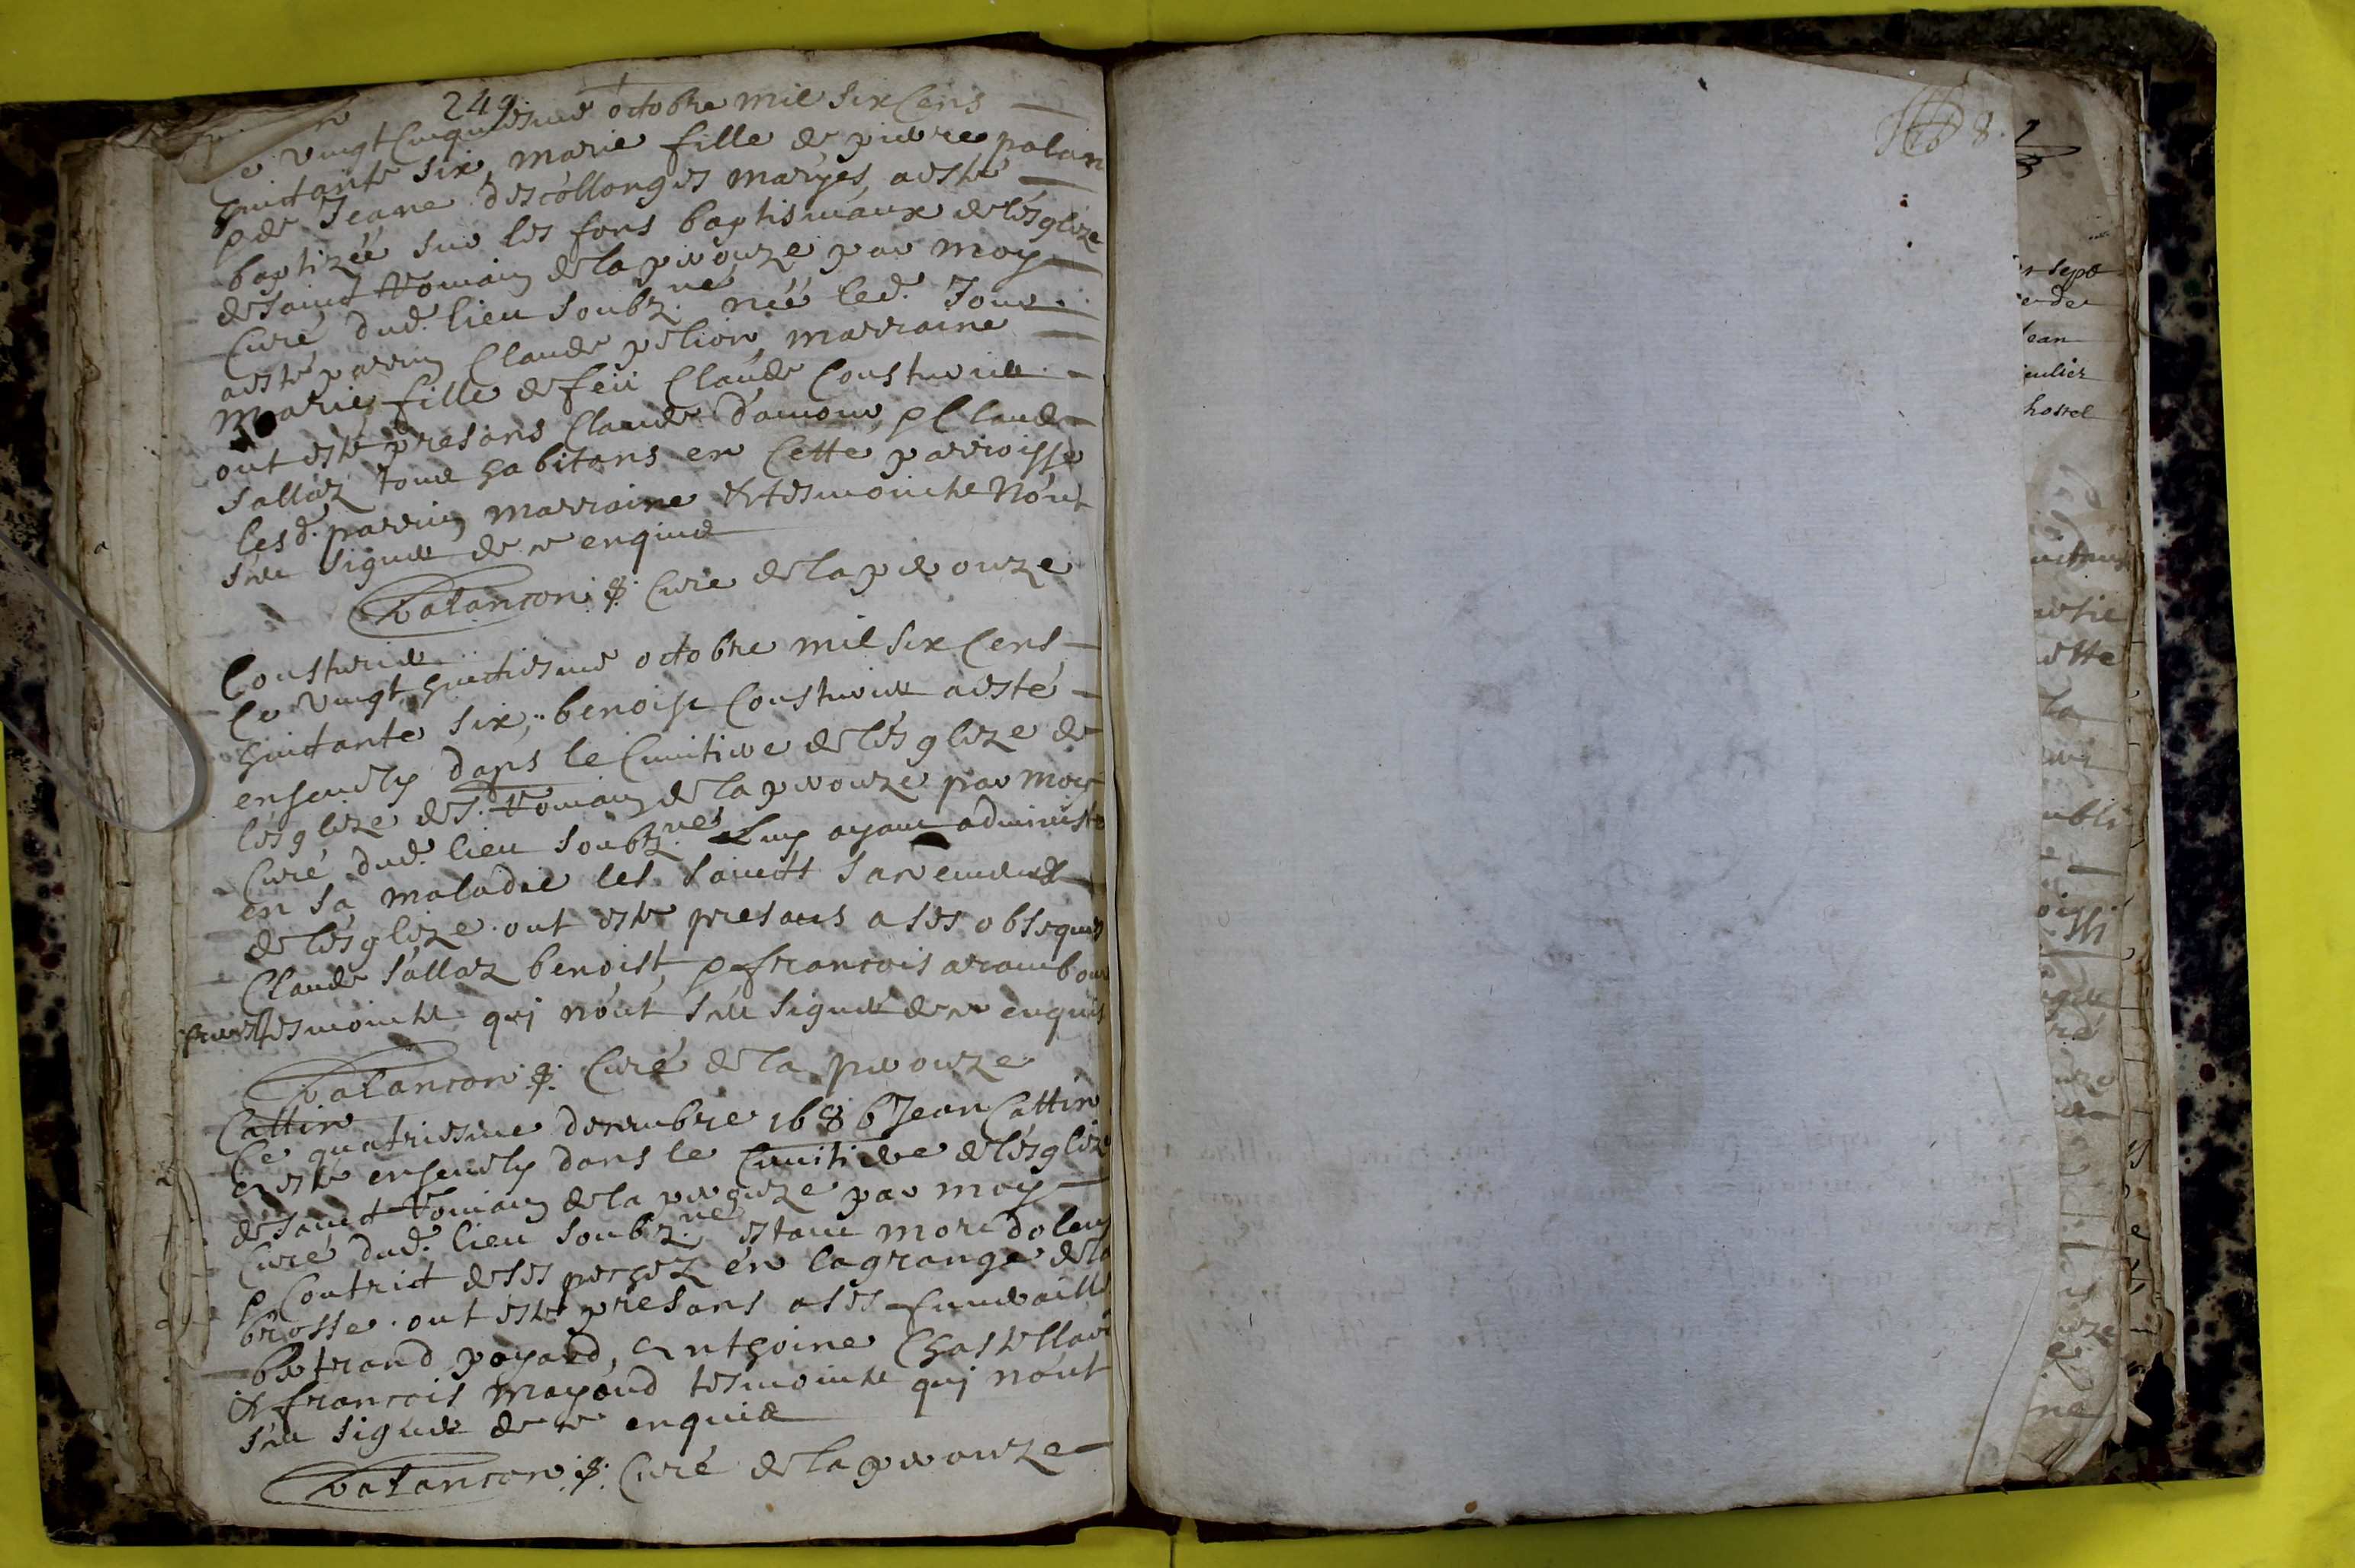 249
Ce vingt cinquiesme octobre mil six cens
huictante six, marie fille de pierre palan
& de Jeane descollonges maryés, a esté
baptizée sur les fons baptismaux de l'esglize
de sainct Romain de la peirouze par moy
Curé dud. lieu soubz.né née led. Jour.
a esté parrin Claude pelion, marraine
marie fille de feu Claude Cousturier
ont esté presans Claude damour, & Claude
sallaz tous habitans en Cette parroisse
lesd. parrin marraine & tesmoins n'ont
sceu signer de ce enquis
Balancon p. Curé de la peirouze
Cousturier
Ce vingt huictiesme octobre mil six Cens
huictante six, benoist Cousturier a esté
ensevely dans le Cimitiere de l'esglize de
l'esglize de S. Romain de la peirouze par moy
Curé dud. lieu soubz.né luy ayant administré
en sa maladie les saincts sacremens
de l'esglize. ont esté presans a ses obseques
Claude sallaz benoist, & francois arambour
tesmoins qui n'ont sceu signer de ce enquis
Balancon p. Curé de la peirouze
Cattin
Ce quatriesme decembre 1686 Jean Cattin
a esté ensevely dans le Cimitiere de l'esglize
de sainct Romain de la peirouze par moy
Curé dud. lieu soubz.né estant mort dolent
& Contrict de ses pechez en la grange de la
brosse. ont esté presans a ses funerailles
bertrand poyard, Anthoine Chastellard
& francois mayoud tesmoins qui n'ont
sceu signer de ce enquis
Balancon p. Curé de la peirouze
8.
sept
de
Jean
hostel